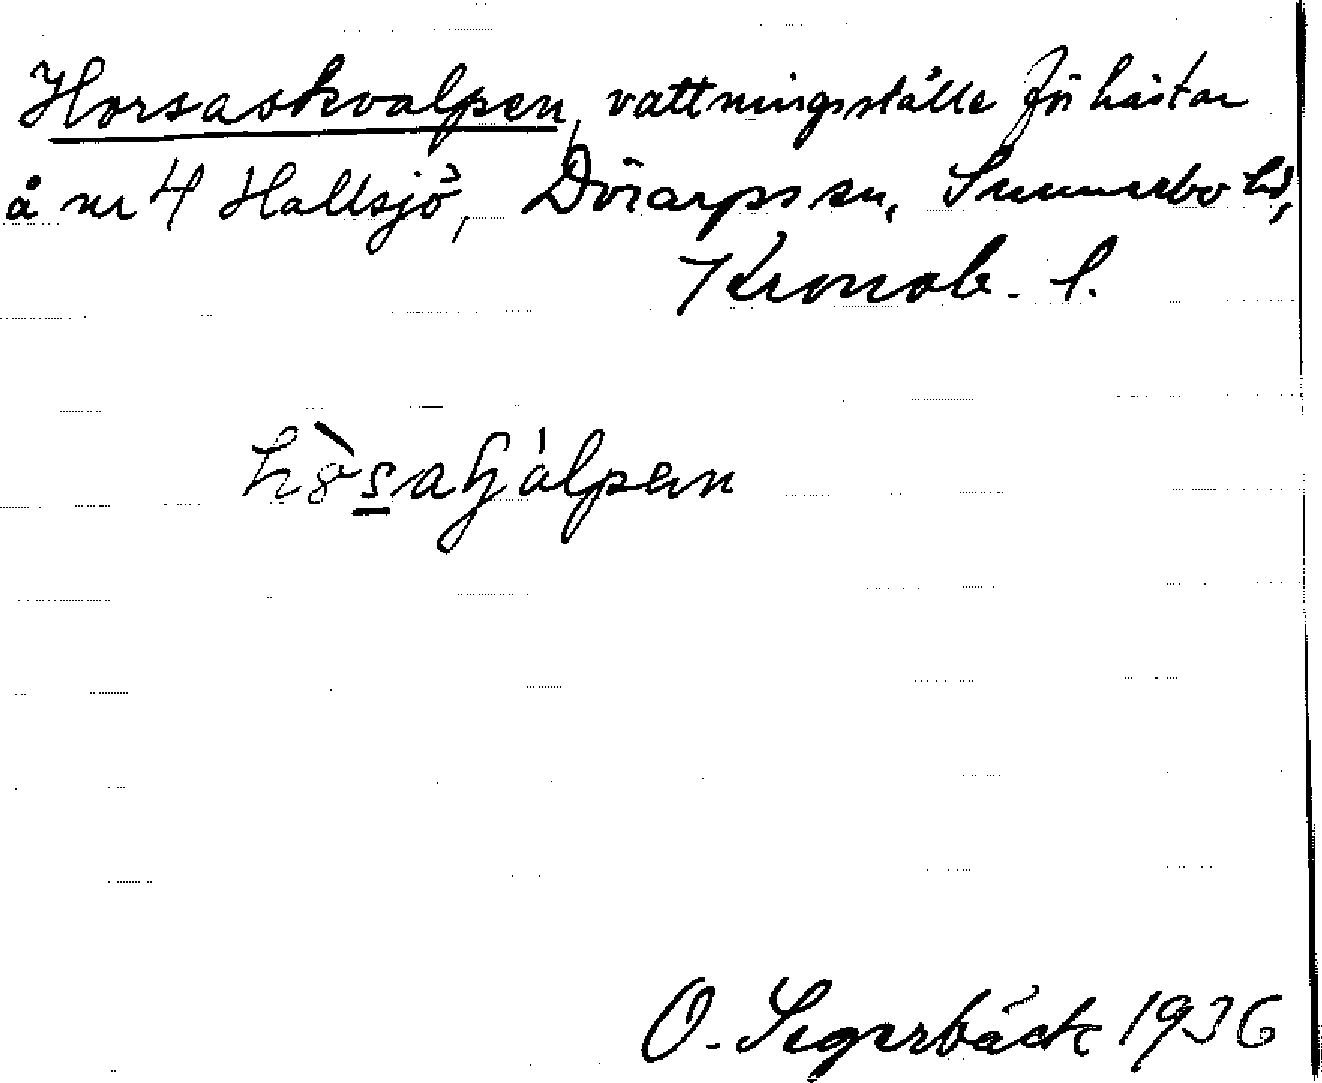 Horsaskvalpen, vattningsställe för hästar
å nr 4 Hallsjö, Dörarps sn, Sunnerbo hd,
Kronob. l.
O. Segerbäck 1936